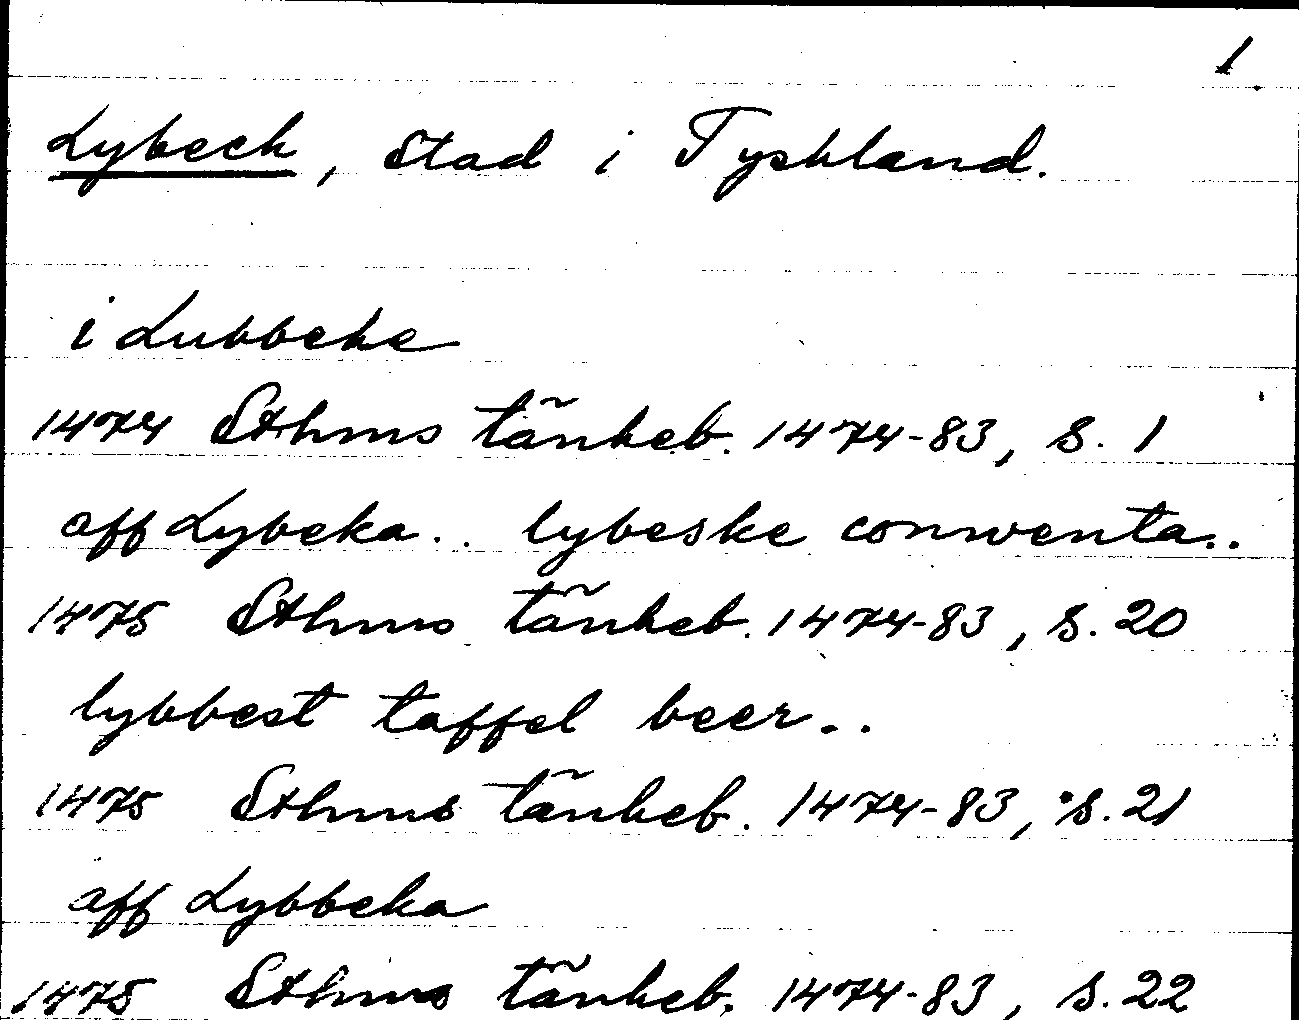 1
Lybeck, stad i Tyskland.
i Lubbeke
1474 Sthms tänkeb. 1474-83, s. 1
aff Lybeka.. lybeske conwenta..
1475 Sthms tänkeb. 1474-83, s. 20
lybbest taffel beer..
1475 Sthms tänkeb. 1474-83, s. 21
aff Lybbeka
1475 Sthms tänkeb. 1474-83, s. 22